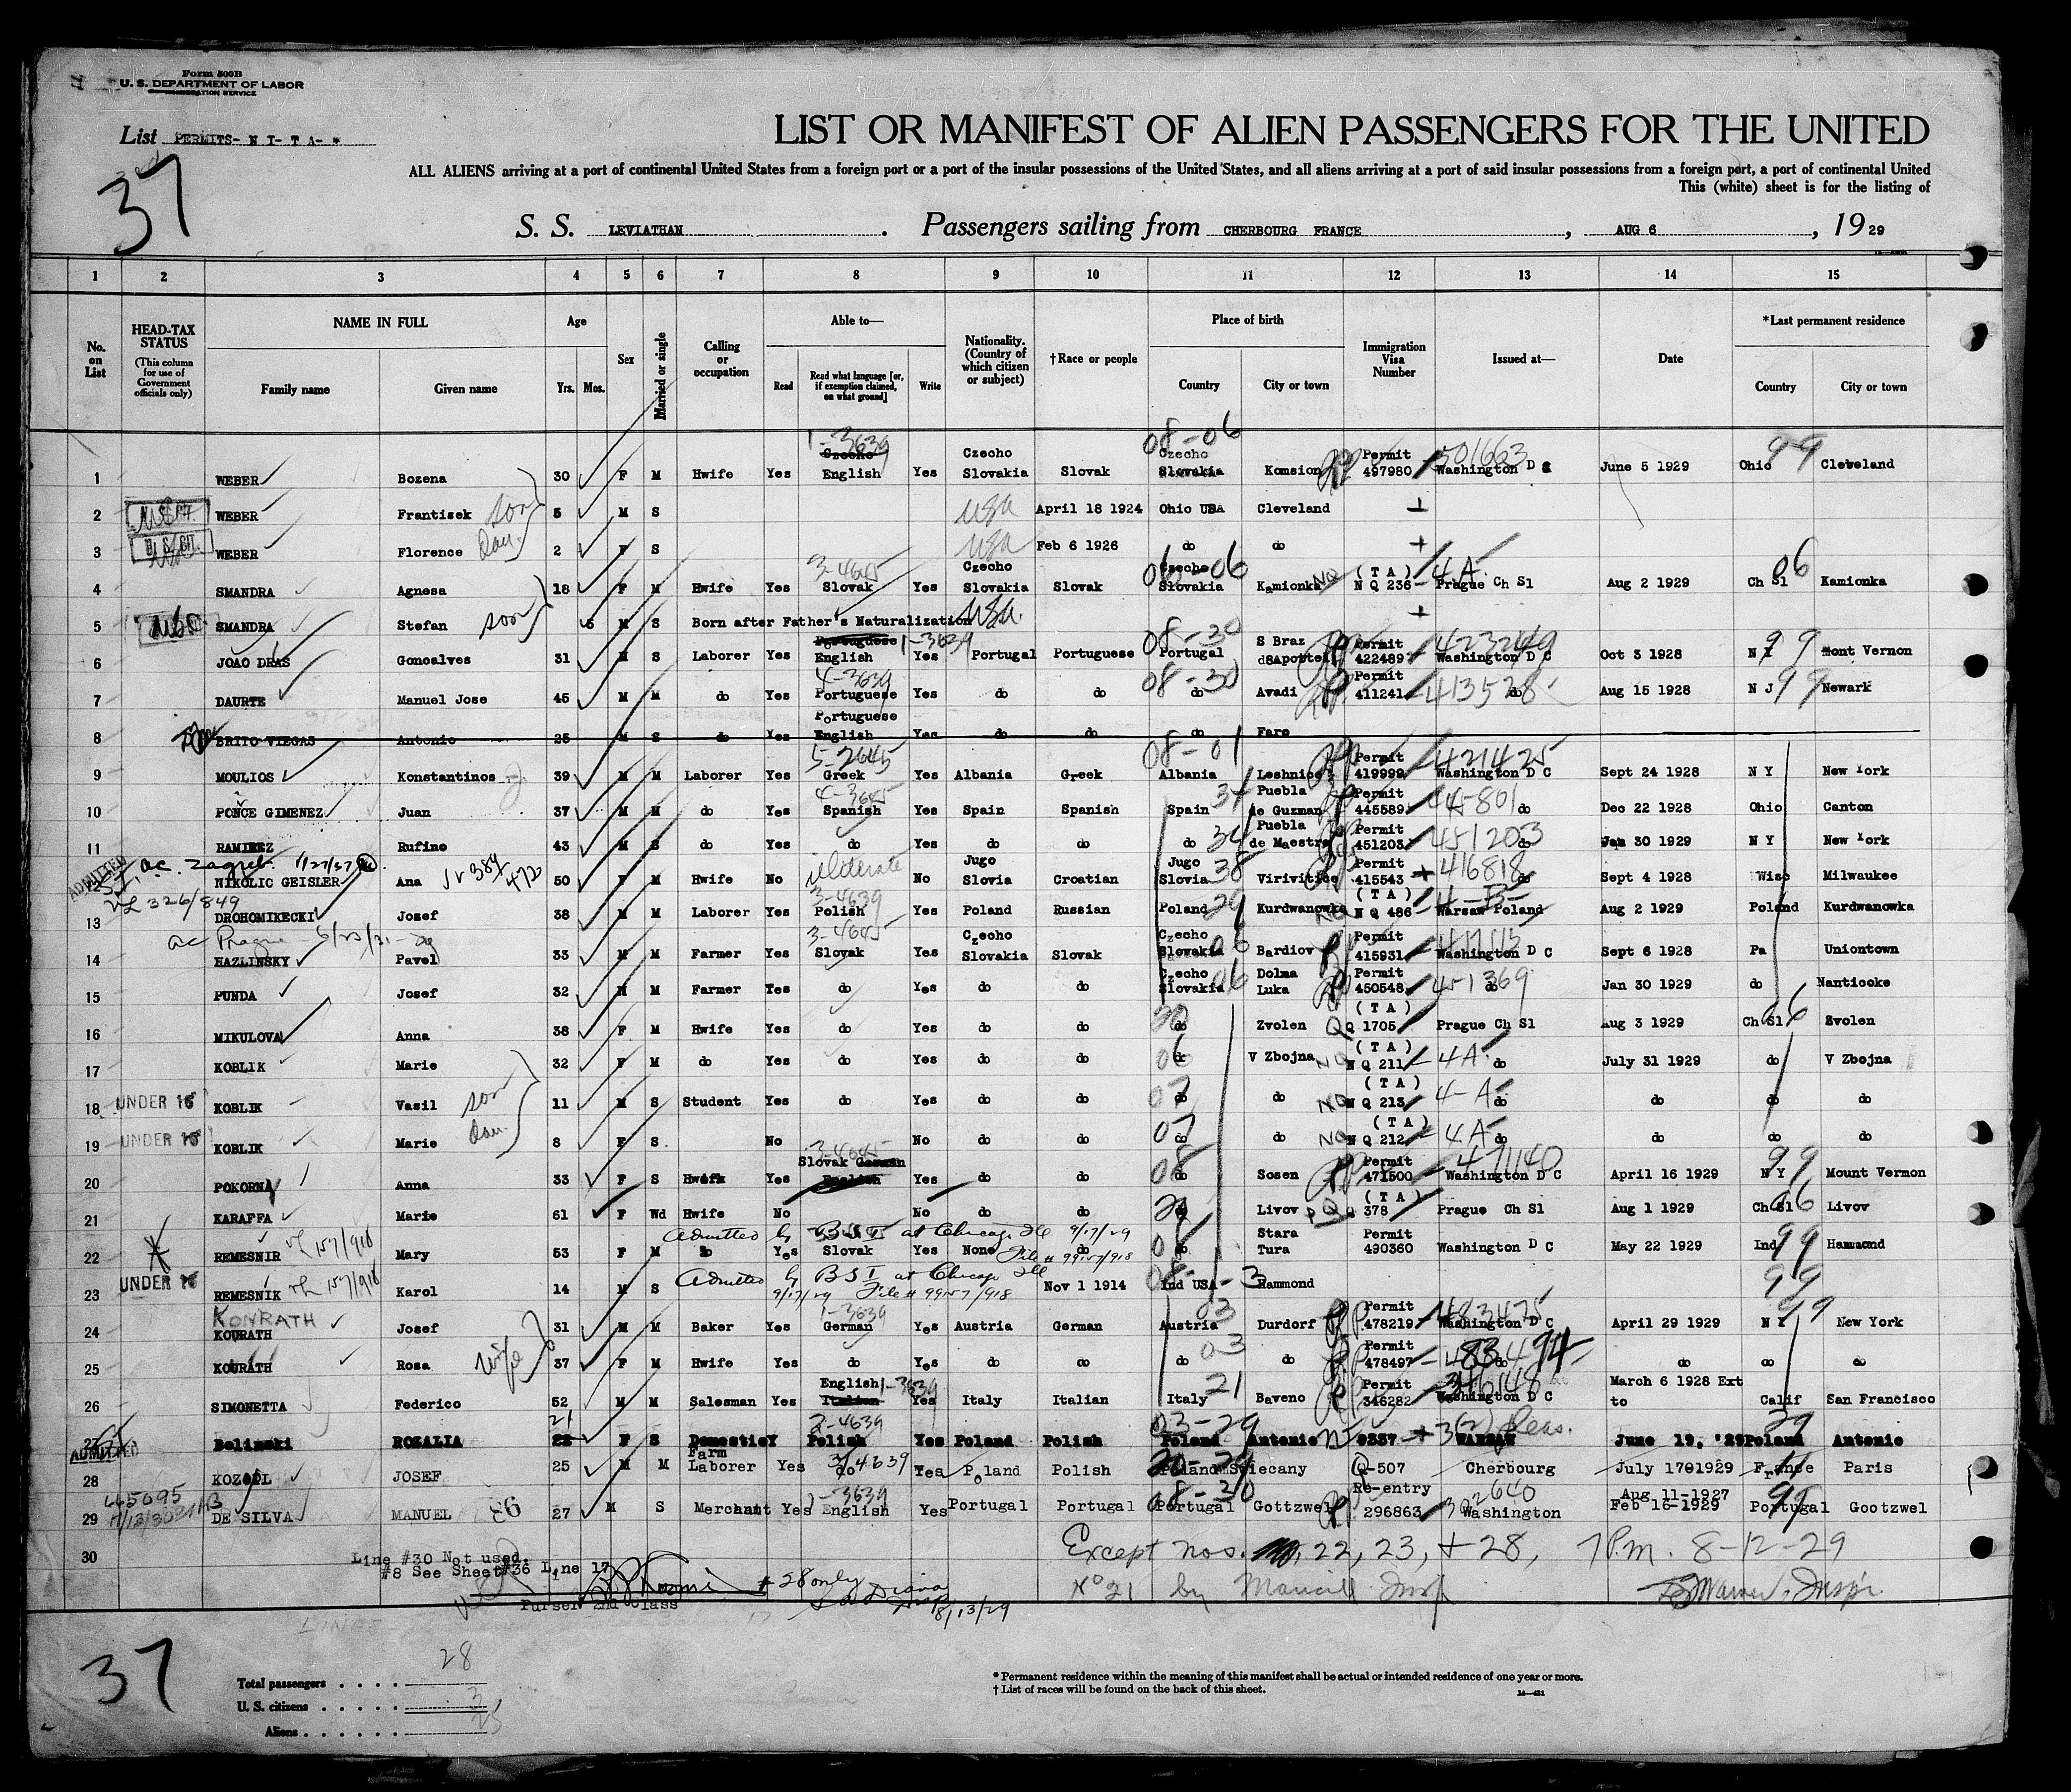 Form 500B
U. S. DEPARTMENT OF LABOR
IMMIGRATION SERVICE
List PERMITS- N I- T A- *
37
LIST OR MANIFEST OF ALIEN PASSENGERS FOR THE UNITED
ALL ALIENS arriving at a port of continental United States from a foreign port or a port of the insular possessions of the United States, and all aliens arriving at a port of said insular possessions from a foreign port, a port of continental United
This (white) sheet is for the listing of
S. S. LEVIATHAN . Passengers sailing from CHERBOURG FRANCE , AUG 6 , 19 29
1 2 3 4 5 6 7 8 9 10 11 12 13 14 15
No. on List
HEAD-TAX STATUS (This column for use of Government officials only)
NAME IN FULL Family name Given name
Age Yrs. Mos.
Sex
Married or single
Calling or occupation
Able to— Read Read what language [or, if exemption claimed, on what ground] Write
Nationality. (Country of which citizen or subject)
†Race or people
Place of birth Country City or town
Immigration Visa Number
Issued at—
Date
*Last permanent residence Country City or town
1-3639 08-06 501663 99
1 WEBER Bozena 30 F M Hwife Yes Czecho English Yes Czecho Slovakia Slovak Czecho Slovakia Komsion Permit 497980 Washington D C June 5 1929 Ohio Cleveland
2 WEBER Frantisek son 5 M S USA April 18 1924 Ohio USA Cleveland
3 U S CIT. WEBER Florence Dau. 2 F S USA Feb 6 1926 do do
4 SMANDRA Agnesa 18 F M Hwife Yes 3-4645 Slovak Yes Czecho Slovakia Slovak Czecho Slovakia 06-06 Kamionka NQ (T A) N Q 236 4A Prague Ch Sl Aug 2 1929 Ch Sl 06 Kamionka
5 SMANDRA Stefan son 5 M S Born after Father's Naturalization USA.
6 JOAO DRAS Goncalves 31 M S Laborer Yes Portuguese English 1-3639 Yes Portugal Portuguese 08-30 Portugal S Braz dSAportel Permit 422489 423249 Washington D C Oct 3 1928 N Y 99 Mont Vernon
7 DAURTE Manuel Jose 45 M M do Yes 4-3639 Portuguese Yes do do 08-30 do Avadi Permit 411241 413528 do Aug 15 1928 N J 99 Newark
8 BRITO VIEGAS Antonio 25 M S do Yes Portuguese English Yes do do do Faro
9 MOULIOS Konstantinos 39 M M Laborer Yes 5-2645 Greek Yes Albania Greek 08-01 Albania Leshnice Permit 419999 421425 Washington D C Sept 24 1928 N Y New York
10 PONCE GIMENEZ Juan 37 M M do Yes 4-3645 Spanish Yes Spain Spanish Spain 34 Puebla de Guzman Permit 445589 44-801 do Dec 22 1928 Ohio Canton
11 RAMIREZ Rufino 43 M S do Yes do Yes do do do 34 Puebla de Maestra Permit 451203 451203 do Jan 30 1929 N Y New York
ADMITTED a.c. Zagreb 1/27/37
NIKOLIC GEISLER Ana 50 F M Hwife No illiterate No Jugo Slovia Croatian Jugo Slovia 38 Virivitice Permit 415543 416818 do Sept 4 1928 Wisc Milwaukee
VL 326/849
13 DROHOMIKECKI Josef 38 M M Laborer Yes 3-4639 Polish Yes Poland Russian Poland 29 Kurdwanowka NQ (T A) N Q 486 4-B Warsaw Poland Aug 2 1929 Poland Kurdwanowka
ac Prague 6/23/31
14 HAZLINSKY Pavel 33 M M Farmer Yes 3-4645 Slovak Yes Czecho Slovakia Slovak Czecho Slovakia 06 Bardiov Permit 415931 Washington D C Sept 6 1928 Pa Uniontown
15 PUNDA Josef 32 M M Farmer Yes do Yes do do Czecho Slovakia 06 Dolma Luka Permit 450548 451369 do Jan 30 1929 do Nanticoke
16 MIKULOVA Anna 38 F M Hwife Yes do Yes do do do Zvolen (T A) Q 1705 Prague Ch Sl Aug 3 1929 Ch Sl 06 Zvolen
17 KOBLIK Marie 32 F M do Yes do Yes do do 06 do V Zbojna NQ (T A) N Q 211 4A do July 31 1929 do V Zbojna
18 UNDER 16 KOBLIK Vasil son 11 M S Student Yes do Yes do do 07 do do NQ (T A) N Q 213 4-A do do do do
19 UNDER 16 KOBLIK Marie Dau. 8 F S No No do do 07 do do NQ (T A) N Q 212 4A do do do do
20 POKORNA Anna 33 F S Hwife Yes 3-4645 Slovak German English Yes do do 08 do Sosen Permit 471500 471140 Washington D C April 16 1929 N Y 99 Mount Vermon
21 KARAFFA Marie 61 F Wd Hwife No No do do do Livov (T A) Q 378 Prague Ch Sl Aug 1 1929 Ch Sl 06 Livov
Admitted by B S I at Chicago Ill 9/17/29 File # 99157/918
22 REMESNIR 157/918 Mary 53 F M do Yes Slovak Yes None do do Stara Tura Permit 490360 Washington D C May 22 1929 Ind 99 Hammond
Admitted by B S I at Chicago Ill 9/17/29 File # 99157/918
23 UNDER 16 REMESNIK 157/918 Karol 14 M S Nov 1 1914 Ind USA Hammond 99
24 KONRATH KOURATH Josef 31 M M Baker Yes 1-3639 German Yes Austria German 03 Austria Durdorf Permit 478219 483475 Washington D C April 29 1929 N Y 99 New York
25 KOURATH Rosa wife 37 F M Hwife Yes do Yes do do 03 do do Permit 478497 483474 do do do do
26 SIMONETTA Federico 52 M M Salesman Yes English 1-3639 Italian Yes Italy Italian Italy 21 Baveno Permit 346282 346148 Washington D C March 6 1928 Ext to Calif San Francisco
27 ADMITTED Belinski ROZALIA 21 22 F S Domestic Y 3-4639 Polish Yes Poland Polish 03-29 Poland Antonie 0337 WARSAW June 19, '29 Poland 29 Antonie
28 KOZOOL JOSEF 25 M M Farm Laborer Yes 3/4639 do Yes Poland Polish Poland Swiecany Q-507 Cherbourg July 17 1929 France Paris
445095
29 DE SILVA MANUEL 86 27 M S Merchant Yes 1-3639 English Yes Portugal Portugal 08-30 Portugal Gottzwel Re-entry 296863 302640 Washington Aug 11-1927 Feb 16-1929 Portugal Gootzwel
30
Line #30 Not used.
#8 See Sheet #36 Line 17
Purser 2nd Class
# 28 only
8/13/29
Except nos. 22, 23, + 28, 7 P.m. 8-12-29
No 21 by Insp
Insp'r
37
Total passengers . . . . 28
U. S. citizens . . . . . 3
Aliens . . . . . . 25
* Permanent residence within the meaning of this manifest shall be actual or intended residence of one year or more.
† List of races will be found on the back of this sheet.